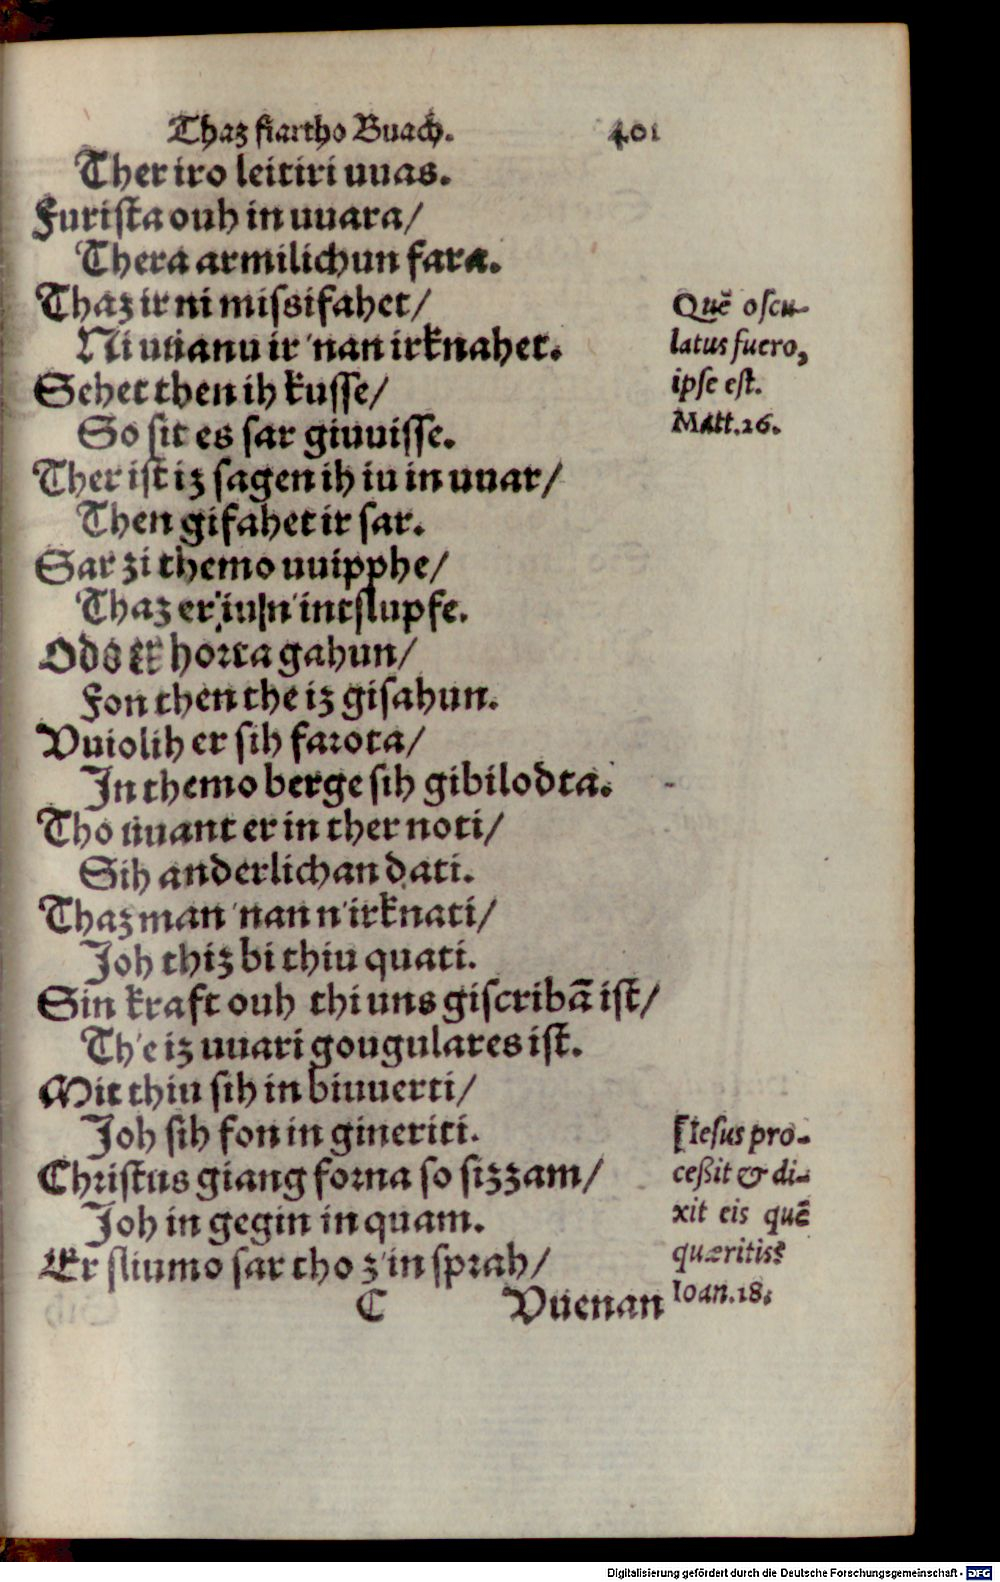 Thaz fiartho Buach. 401
Ther iro leitiri uuas.
Furista ouh in uuara/
Thera armilichun fara.
Thaz ir ni missifahet/
Ni uuanu ir 'nan irknahet.
Sehet then ih kusse/
So sit es sar giuuisse.
Ther ist iz sagen ih iu in uuar/
Then gifahet ir sar.
Sar zi themo uuipphe/
Thaz er 'iu in' intslupfe.
Odo er horta gahun/
Fon then the iz gisahun.
Vuiolih er sih farota/
In themo berge sih gibilodta.
Tho uuant er in ther noti/
Sih anderlichan dati.
Thaz man 'nan n'irknati/
Joh thiz bi thiu quati.
Sin kraft ouh thi uns giscribā ist/
Th'e iz uuari gougulares ist.
Mit thiu sih in biuuerti/
Joh sih fon in gineriti.
Christus giang forna so sizzam/
Joh in gegin in quam.
Er sliumo sar tho z'in sprah/
C Vuenan
Quē oscu-
latus fuero,
ipse est.
Matt.26.
Iesus pro-
ceßit & di-
xit eis quē
quæritis?
Ioan.18.
Digitalisierung gefördert durch die Deutsche Forschungsgemeinschaft - DFG